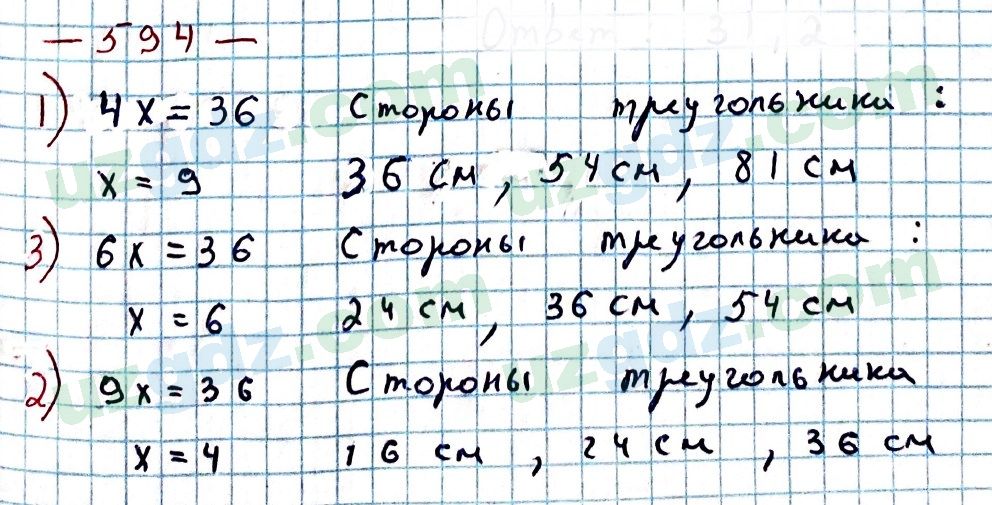 Ответ: 31,2
— 594 —
1) 4x = 36 Стороны треугольника :
x = 9 36 см , 54 см , 81 см
3) 6x = 36 Стороны треугольника :
x = 6 24 см , 36 см , 54 см
2) 9x = 36 Стороны треугольника
x = 4 16 см , 24 см , 36 см
uzgdz.com
uzgdz.com
uzgdz.com
uzgdz.com
uzgdz.com
uzgdz.com